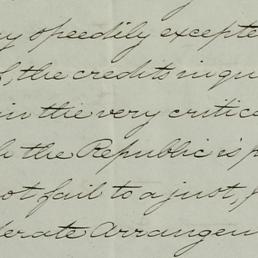 y speedily excepte
f, the credits in qu
in the very critic
h the Republic is p
not fail to a just, f
derate Arrangem